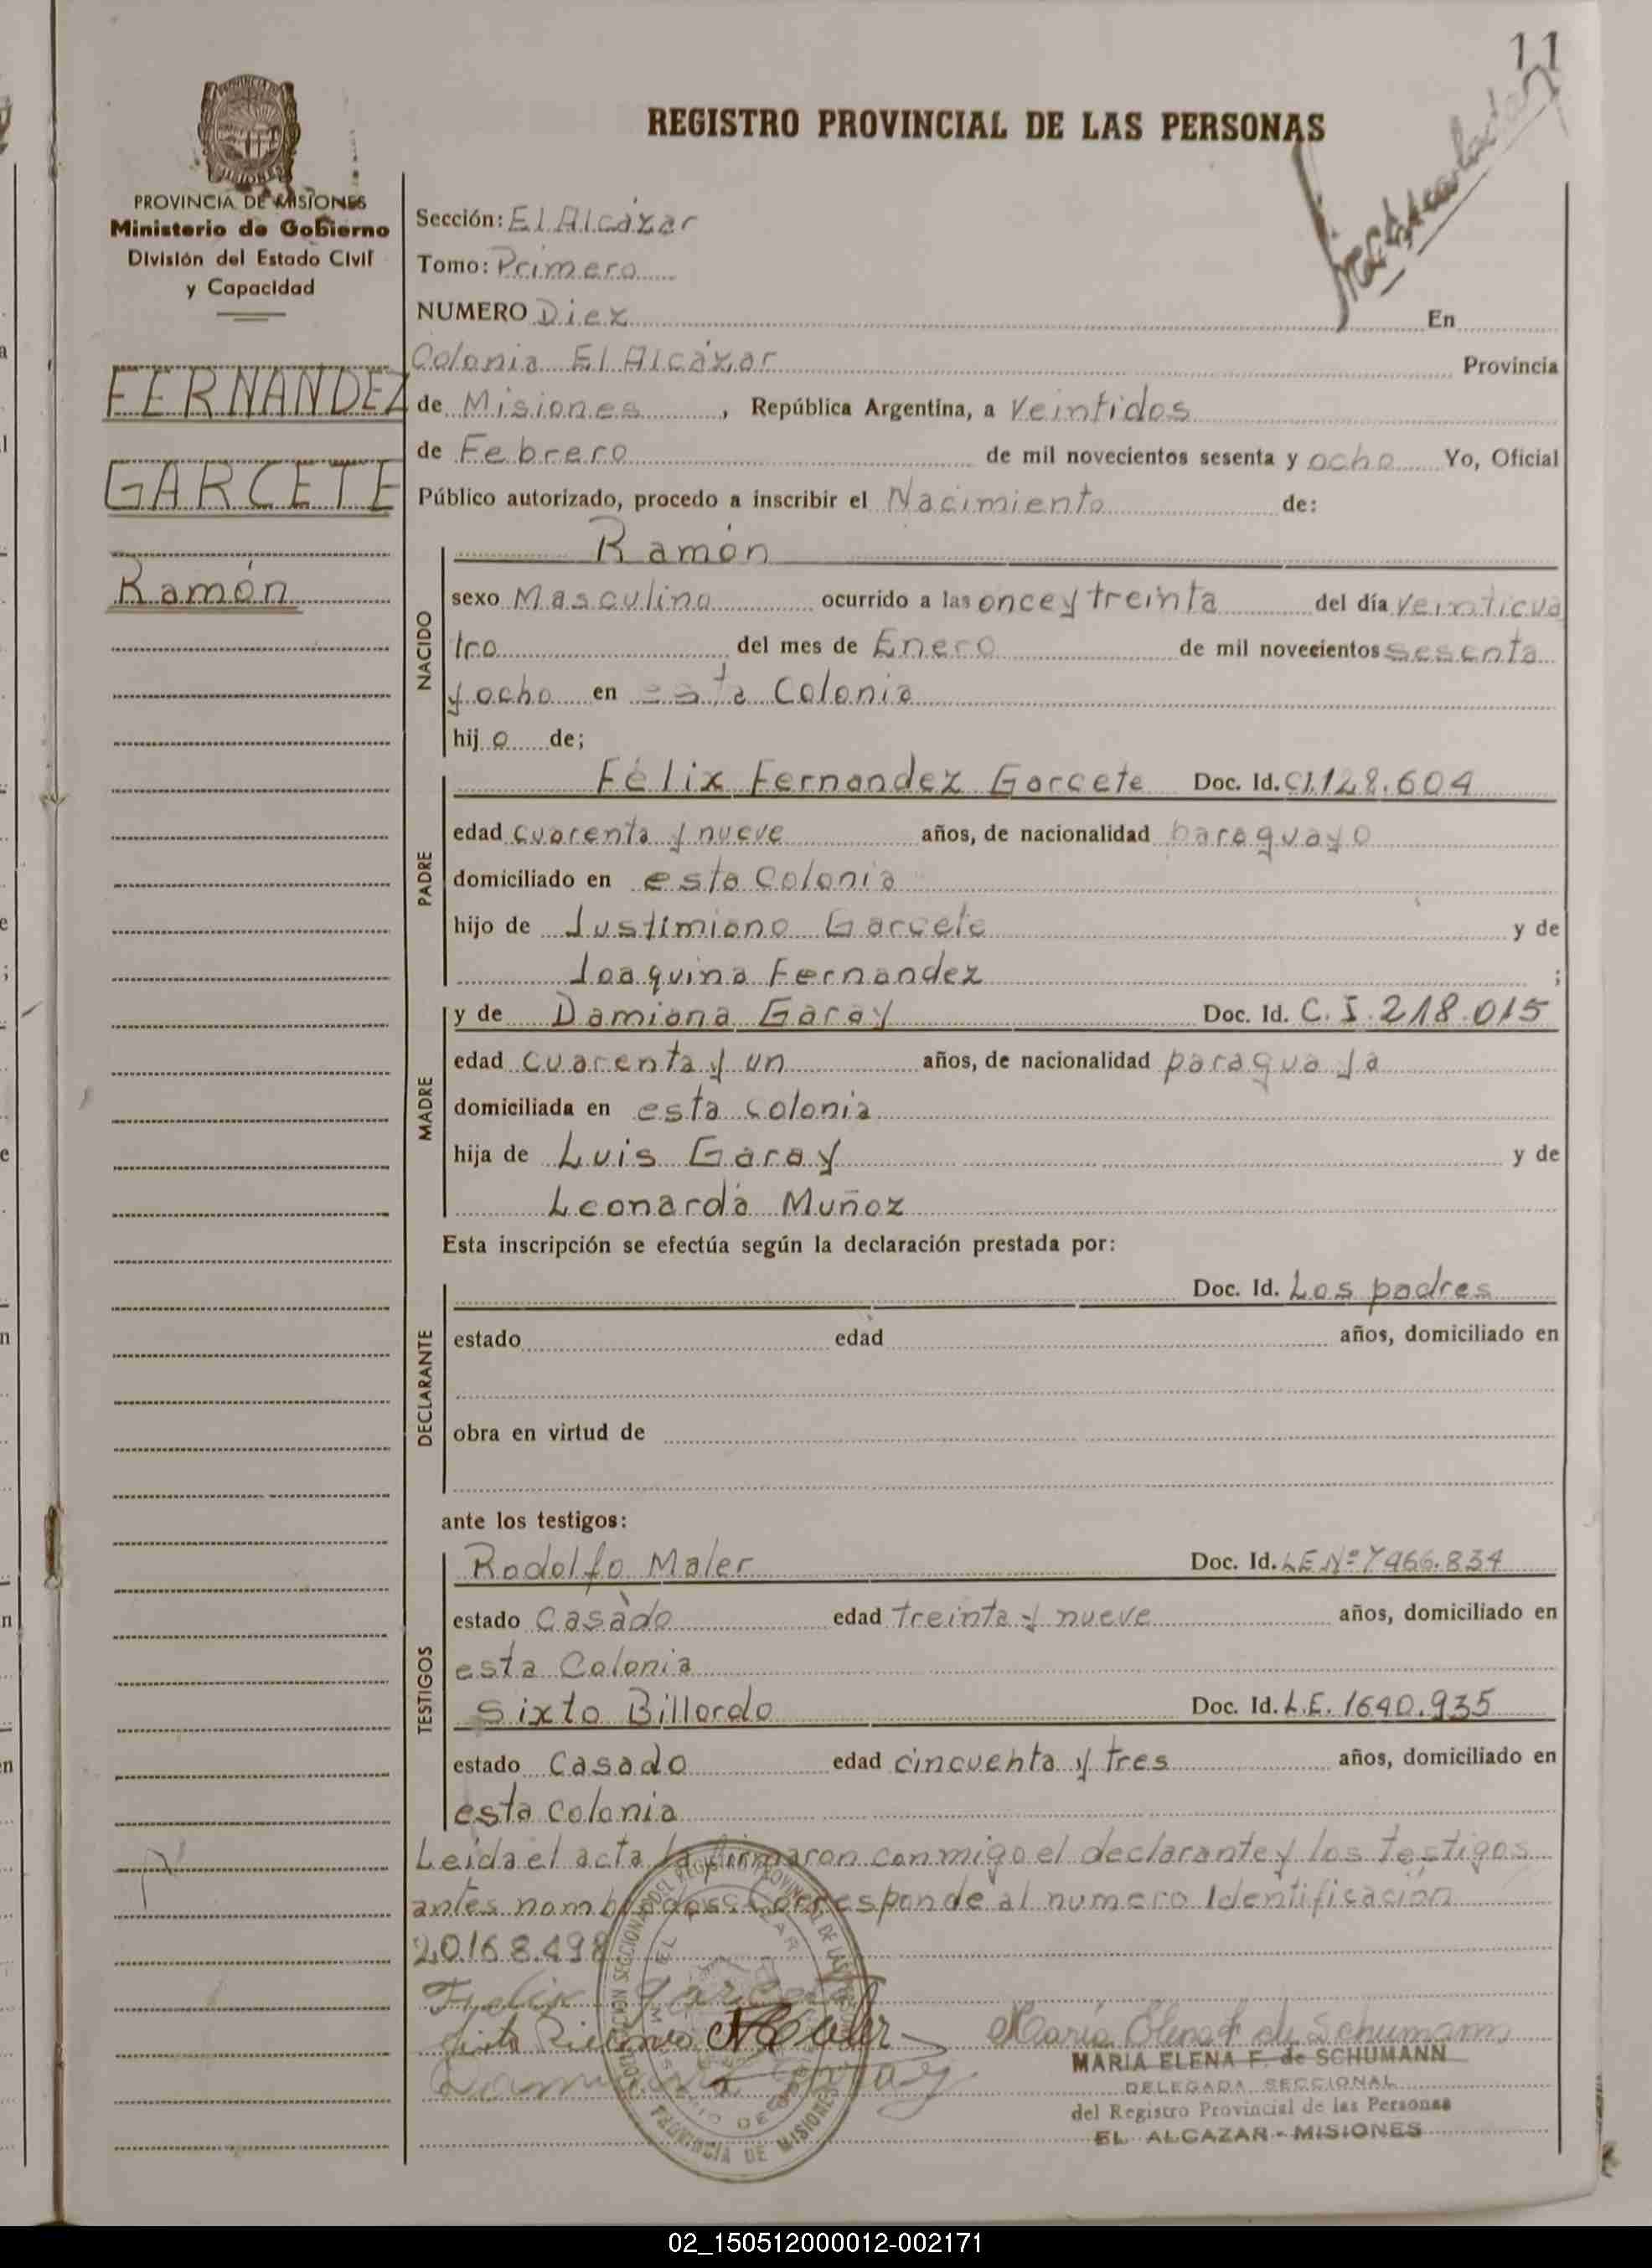 11
PROVINCIA DE MISIONES
Ministerio de Gobierno
División del Estado Civil
y Capacidad
FERNANDEZ
GARCETE
Ramón
REGISTRO PROVINCIAL DE LAS PERSONAS
Sección: El Alcázar
Tomo: Primero
NUMERO Diez En
Colonia El Alcázar Provincia
de Misiones, República Argentina, a Veintidos
de Febrero de mil novecientos sesenta y ocho Yo, Oficial
Público autorizado, procedo a inscribir el Nacimiento de:
NACIDO
Ramón
sexo Masculino ocurrido a las once y treinta del día veinticua
tro del mes de Enero de mil novecientos sesenta
y ocho en esta Colonia
hijo de;
PADRE
Félix Fernandez Garcete Doc. Id. CI.128.604
edad cuarenta y nueve años, de nacionalidad paraguayo
domiciliado en esta Colonia
hijo de Justimiano Garcete y de
Joaquina Fernandez ;
MADRE
y de Damiana Garay Doc. Id. C.I.218.015
edad cuarenta y un años, de nacionalidad paraguaya
domiciliada en esta colonia
hija de Luis Garay y de
Leonarda Muñoz
Esta inscripción se efectúa según la declaración prestada por:
DECLARANTE
Doc. Id. Los padres
estado edad años, domiciliado en
obra en virtud de
ante los testigos:
TESTIGOS
Rodolfo Maler Doc. Id. LE Nº 7466.834
estado Casado edad treinta y nueve años, domiciliado en
esta Colonia
Sixto Billordo Doc. Id. L.E. 1640.935
estado Casado edad cincuenta y tres años, domiciliado en
esta colonia
Leída el acta la firmaron conmigo el declarante y los testigos
antes nombrados: Corresponde al numero Identificación
20168498
Felix Garcete
María Elena F de Schumann
MARIA ELENA F. de SCHUMANN
DELEGADA SECCIONAL
del Registro Provincial de las Personas
EL ALCAZAR - MISIONES
PROVINCIA DE MISIONES
02_150512000012-002171